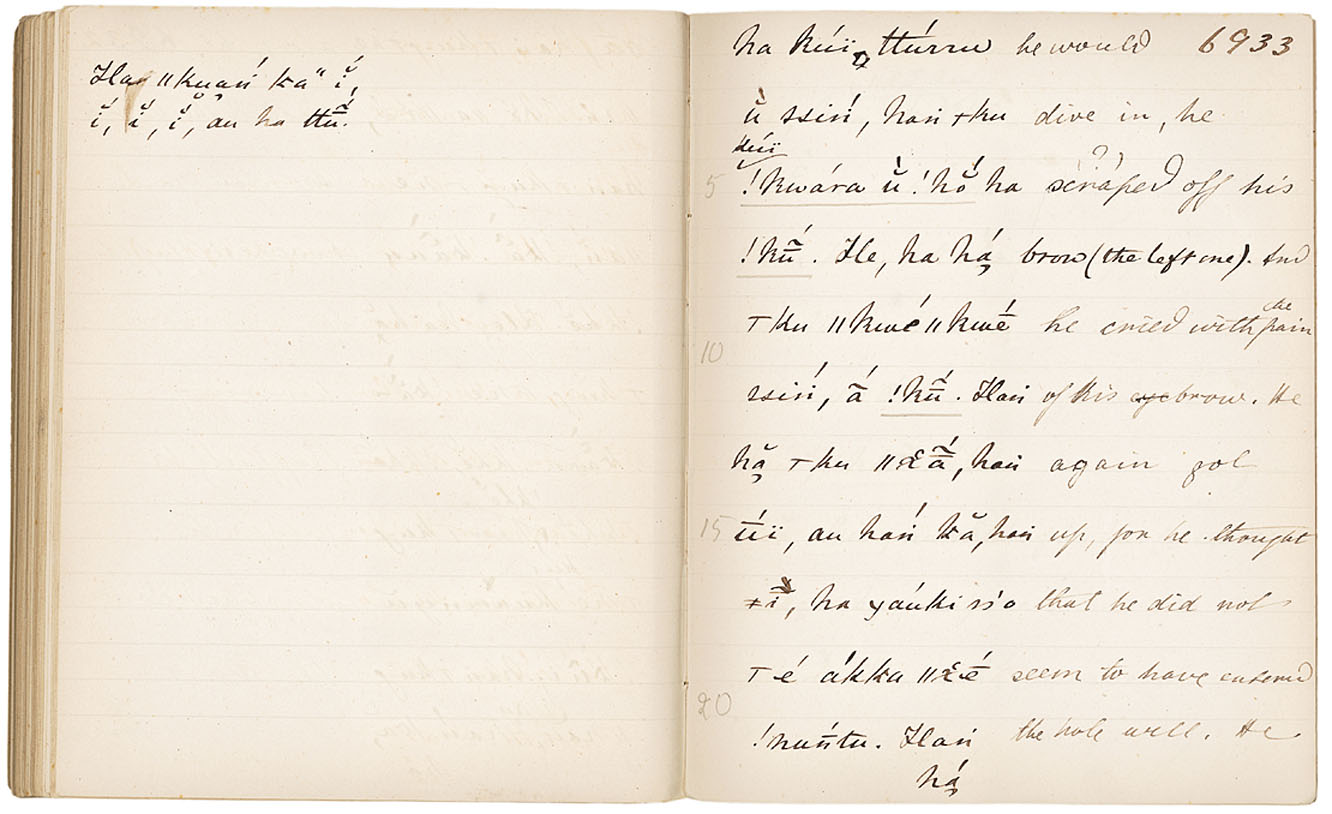 Haṅ ǁkuaṅ́ ka" ĭ́,
ĭ́, ĭ́, ĭ́, au ha ttū̃́.
ha kúï, ttúrru he would 6933
ù̆ ssiṅ́, haṅ ǂku dive in, he
kúï
5 !kwára ù̆ !hŏ́ ha scraped off his
?
!kū̃́. He, ha há̤ brow (the left one). And
ǂku ǁkwé ǁkwḗ he cried with pain
the
10
ssiṅ́, ā́ !kū̃́. Haṅ of his eyebrow. He
hă̤ ǂku ǁχā̃́, haṅ again got
15 ū́ï, au haṅ́ kă, haṅ up, for he thought
ǂī̃, ha yáuki ss'o that he did not
ǀé ákka ǁχḗ seem to have entered
20
!nuṅ̄tu. Haṅ the hole well. He
há̤